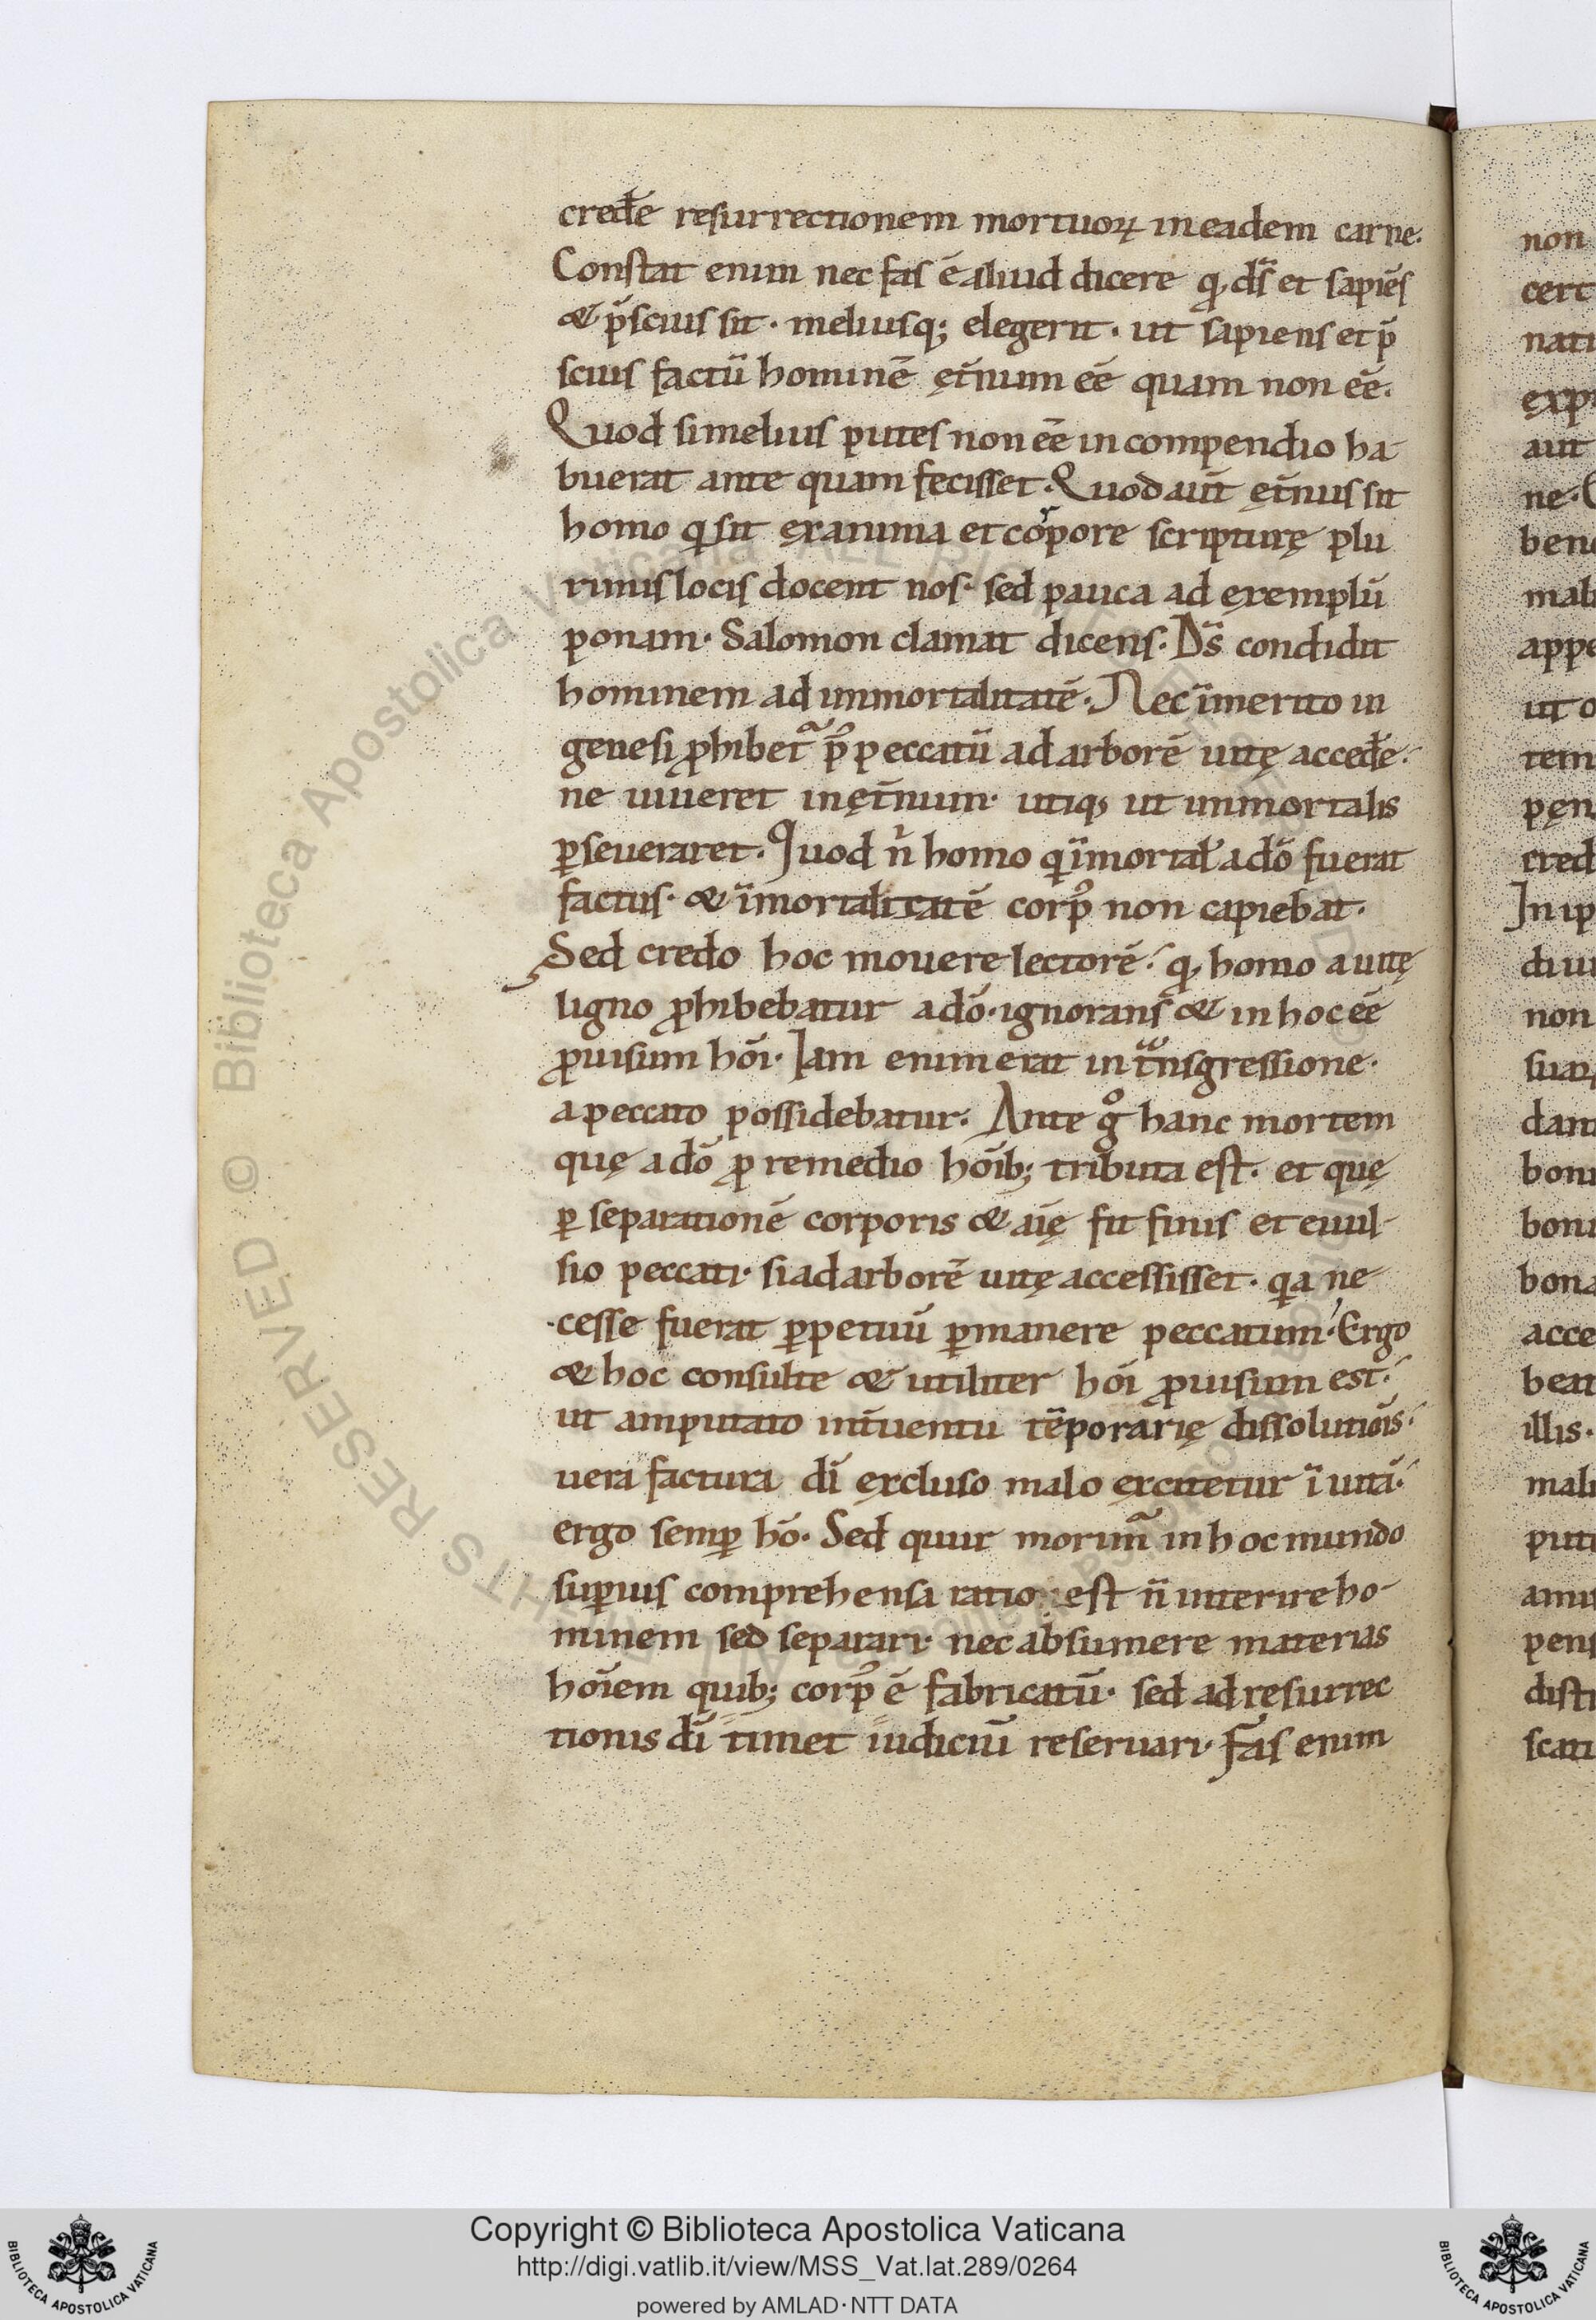 cređe resurrectionem mortuoꝝ in eadem carne.
Constat enim nec fas ē aliud dicere q, ds̄ et sapiēs
& p̄scius sit. meliusq; elegerit. ut sapiens et p̄
scius factū hominē ęt̄num eē quam non eē.
Quod si melius putes non eē in compendio ha
buerat ante quam fecisset. Quod aut̄ ęt̄nus sit
homo q sit ex anima et corpore scripturę plu
rimis locis docent nos. sed pauca ad exemplū
ponam. Salomon clamat dicens. Ds̄ condidit
hominem ad immortalitatē. Nec īmerito in
genesi ꝓhibet᷑ p᷒ peccatū ad arborē uitę acceđe.
ne uiueret in ęt̄num. utiq, ut immortalis
ꝑseueraret. Quod n̄ homo q īmortał a dō fuerat
factus. & īmortalitatē corp᷒ non capiebat.
Sed credo hoc mouere lectorē. q, homo a uitę
ligno ꝓhibebatur a dō. ignorans & in hoc eē
ꝓuisum hōi. Iam enim erat in tͣnsgressione.
a peccato possidebatur. Ante gͦ hanc mortem
quę a dō ꝓ remedio hōib; tributa est. et quę
ꝑ separationē corporis & aīę fit finis et euul-
sio peccati. si ad arborē uitę accessisset. qa ne
cesse fuerat ꝑpetuū ꝑmanere peccatum. Ergo
& hoc consulte & utiliter hōi ꝓuisum est.
ut amputato int̄uentu tēporarię dissolutiōis.
uera factura dī excluso malo excitetur ī uitā.
ergo semꝑ hō. Sed quur morim᷑ in hoc mundo
suꝑius comprehensa ratio est n̄ interire ho-
minem sed separari. nec absumere materias
hōiem quib; corp᷒ ē fabricatū. sed ad resurrec
tionis dī timet iudiciū reseruari. Fas enim
non
cert
nati
exp
aut
ne.
bene
mali
appe
ut o
tem
pęn
cred
In ip
diui
non
suar
dam
boni
boni
bona
acce
beat
illis.
mali
puti
ami
pens
disti
scati
© Biblioteca Apostolica Vaticana ALL RIGHTS RESERVED
Copyright © Biblioteca Apostolica Vaticana
http://digi.vatlib.it/view/MSS_Vat.lat.289/0264
powered by AMLAD·NTT DATA
BIBLIOTECA APOSTOLICA VATICANA
BIBLIOTECA APOSTOLICA VATICANA